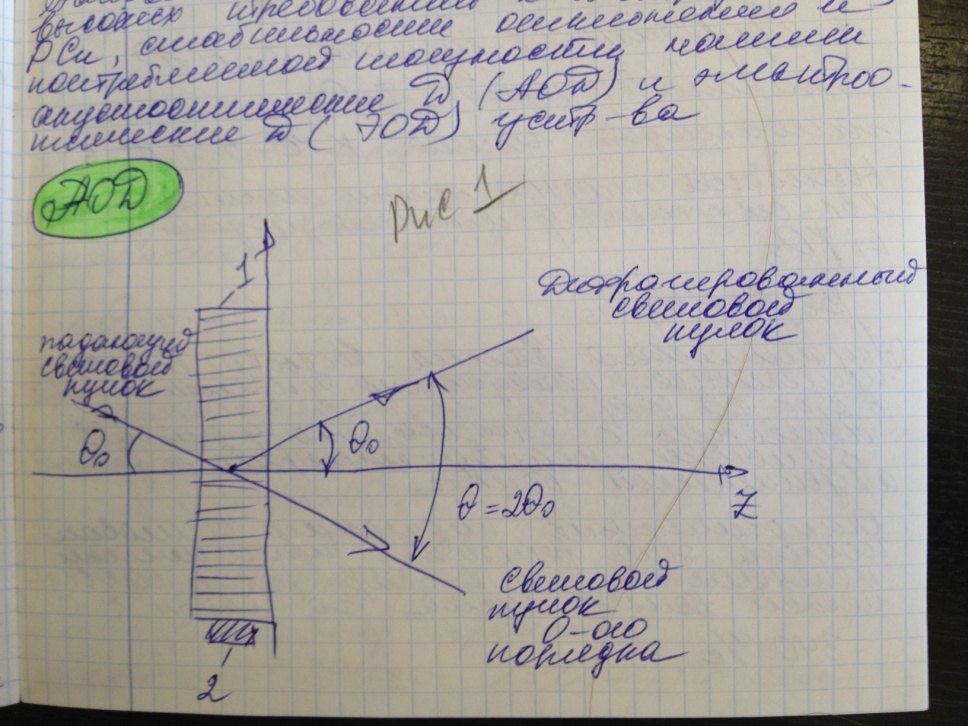 высоких требований к
РСи, стабильности отклонения и
потребляемой мощности нашли
акустооптические D (АОД) и электрооп-
тические D (ЭОД) устр-ва
АОД
Рис 1
1
Дифрагированный
световой
пучок
падающий
световой
пучок
θ₀
θ₀
θ = 2θ₀
Z
Световой
пучок
0-ого
порядка
2